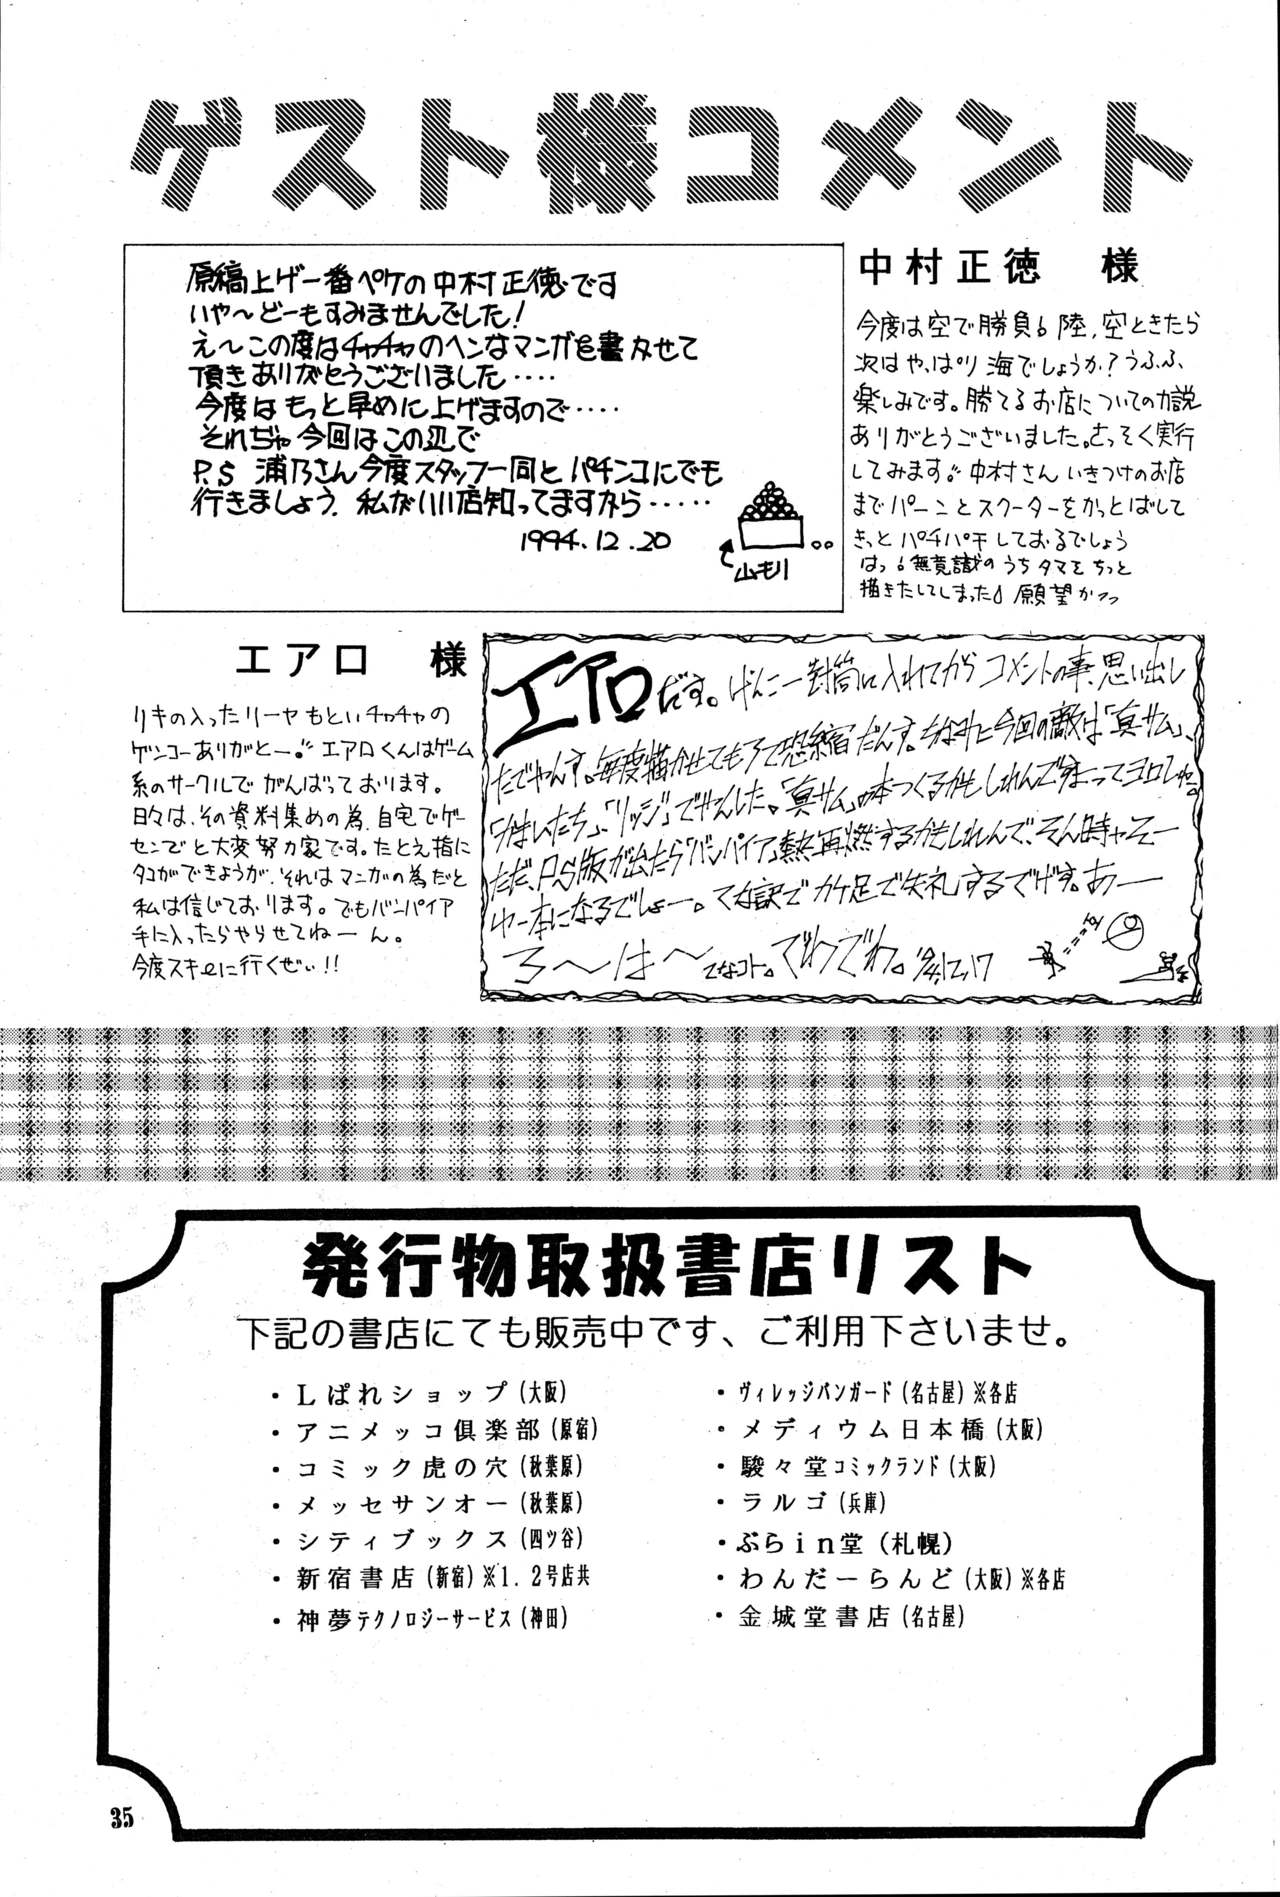 ゲスト様コメント
原稿上げ一番ペケの中村正徳です
いや〜どーもすみませんでした!
え〜この度はチャチャのヘンなマンガを書かせて
頂きありがとうございました‥‥
今度はもっと早めに上げますので‥‥
それぢゃ今回はこの辺で
P.S 浦乃さん今度スタッフ一同とパチンコにでも
行きましょう. 私がいい店知ってますから‥‥
1994.12.20
山もり
中村正徳 様
今度は空で勝負。陸,空ときたら
次はやっぱり海でしょうか?うふふ、
楽しみです。勝てるお店についての力説
ありがとうございました。さっそく実行
してみます。中村さんいきつけのお店
までパーンとスクーターをかっとばして
きっとパチパチしておるでしょう
はっ。無意識のうちタマをちっと
描きたしてしまった。願望かっっ
エアロ 様
リキの入ったリーヤもといチャチャの
ゲンコーありがとー。エアロくんはゲーム
系のサークルでがんばっております。
日々は、その資料集めの為、自宅でゲー
センでと大変努力家です。たとえ指に
タコができようが、それはマンガの為だと
私は信じております。でもバンパイア
手に入ったらやらせてねーん。
今度スキーに行くぜい!!
エアロだす。げんこー封筒に入れてから コメントの事、思い出し
たでやんす。毎度描かせてもろて恐縮だんす。ちなみに今回の敵は「真サム」、
「かまいたち」、「リッジ」でやんした。「真サム」の本つくるかもしれんですよってヨロしゅ。
ただ、PS版が出たら「バンパイア」熱再燃するかもしれんで、そん時ゃそー
ゆー本になるでしょー。てな訳でカケ足で失礼するでげす。あー
ろ〜は〜 てなコト。でわでわ。'94,12,17
発行物取扱書店リスト
下記の書店にても販売中です、ご利用下さいませ。
・Lぱれショップ(大阪)
・アニメッコ倶楽部(原宿)
・コミック虎の穴(秋葉原)
・メッセサンオー(秋葉原)
・シティブックス(四ツ谷)
・新宿書店(新宿)※1.2号店共
・神夢テクノロジーサービス(神田)
・ヴィレッジバンガード(名古屋)※各店
・メディウム日本橋(大阪)
・駿々堂コミックランド(大阪)
・ラルゴ(兵庫)
・ぶらin堂(札幌)
・わんだーらんど(大阪)※各店
・金城堂書店(名古屋)
35